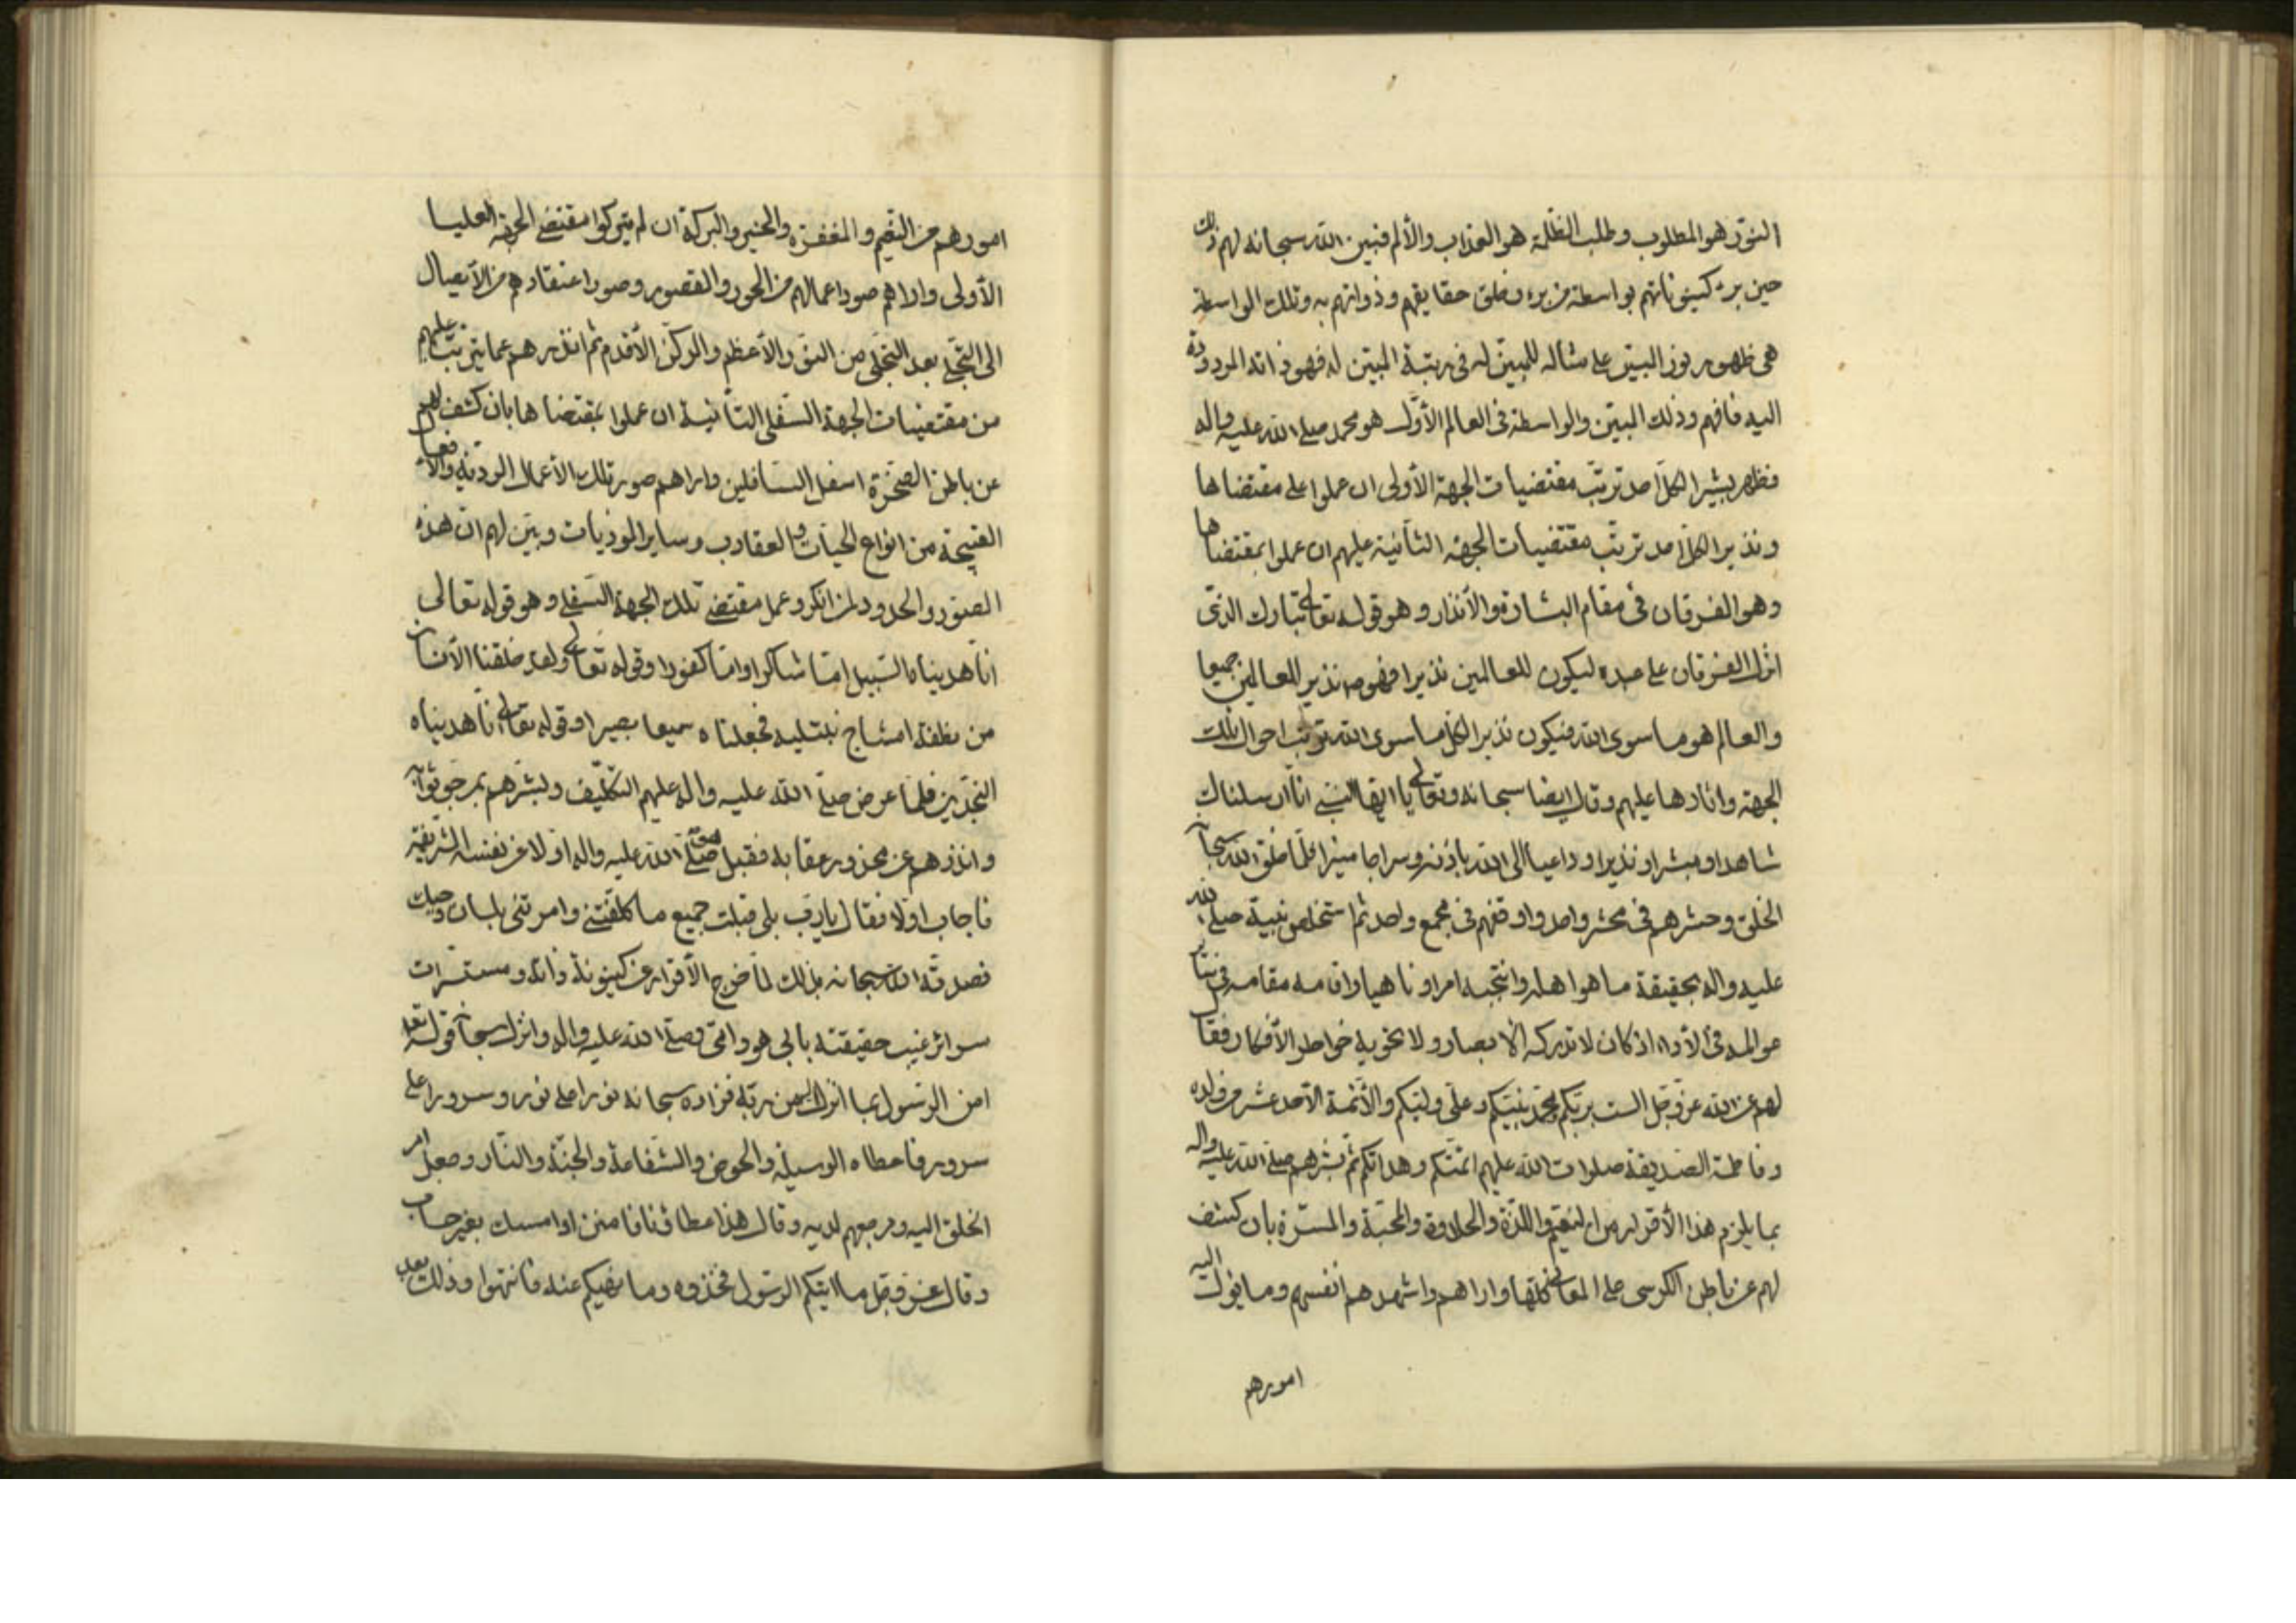 النور هو المطلوب وطلب الظلمة هو العذاب والألم فبين الله سبحانه لهم ذلك
حين برء كينوناتهم بواسطة من برء وخلق حقايقهم وذواتهم به وتلك الواسطة
هى ظهور نور المبين على مثاله للمبين له فى رتبة المبين له فهو ذاته المردودة
اليه فافهم وذلك المبين والواسطة فى العالم الأول هو محمد صلى الله عليه واله
فظهر بشيرا لكل احد ترتب مقتضيات الجهة الأولى ان عملوا على مقتضاها
ونذيرا لكل احد ترتب مقتضيات الجهة الثانية عليهم ان عملوا بمقتضاها
وهو الفرقان فى مقام البشارة والأنذار وهو قوله تعالى تبارك الذى
انزل الفرقان على عبده ليكون للعالمين نذيرا فهو نذير للعالمين جميعا
والعالم هو ما سوى الله فيكون نذيرا لكل ما سوى الله ترتب احوال تلك
الجهة واثارها عليهم وقال ايضا سبحانه وتعالى يا ايها النبى انا ارسلناك
شاهدا ومبشرا ونذيرا وداعيا الى الله باذنه وسراجا منيرا فلما خلق الله سبحا
الخلق وحشرهم فى محشر واحد واوقفهم فى مجمع واحد ثم استخلص نبيه صلى الله
عليه واله بحقيقة ما هو اهله وانتجبه امرا وناهيا واقامه مقامه فى سا
عوالمه فى الأداء اذ كان لا تدركه الأبصار ولا تحويه خواطر الأفكار فقا
لهم عن الله عز وجل الست بربكم ومحمد نبيكم وعلى وليكم والأئمة الأحد عشر من ولده
وفاطمة الصديقة صلوات الله عليهم ائمتكم وهداتكم ثم بشرهم صلى الله عليه واله
بما يلزم هذا الأقرار من النعيم واللذة والحلاوة والمحبة والمسرة بان كشف
لهم عن باطن الكرسى على المعانى كلها واراهم واشهدهم انفسهم وما يؤل اليه
امورهم
امورهم من النعيم والمغفرة والخير والبركة ان لم يتركوا مقتضى الجهة العليا
الأولى واراهم صور اعمالهم من الحور والقصور وصور اعتقادهم من الأتصال
الى التجلى بعد التجلى من النور الأعظم والركن الأقدم ثم انذرهم عما يترتب عليهم
من مقتضيات الجهة السفلى الثانية ان عملوا بمقتضاها بان كشف لهم
عن باطن الصخرة اسفل السافلين واراهم صور تلك الأعمال الردية والأفعال
القبيحة من انواع الحيات والعقارب وساير الموذيات وبين لهم ان هذه
الصور والحدود لمن انكر وعمل مقتضى تلك الجهة السفلى وهو قوله تعالى
انا هديناه السبيل اما شاكرا واما كفورا وقوله تعالى ولقد خلقنا الأنسان
من نطفة امشاج نبتليه فجعلناه سميعا بصيرا وقوله تعالى انا هديناه
النجدين فلما عرض صلى الله عليه واله عليهم التكليف وبشرهم بمرجو ثوابه
وانذرهم عن محذور عقابه فقبل هو صلى الله عليه واله اولا عن نفسه الشريفة
فاجاب اولا فقال يا رب بلى قبلت جميع ما كلفتنى وامرتنى بلسان وحيك
فصدقه الله سبحانه بذلك لما خرج الأقرار عن كينونة ذاته ومستسرات
سرائر غيب حقيقته بابى هو وامى وصلى الله عليه واله وانزل سبحانه قوله تعا
امن الرسول بما انزل اليه من ربه فزاده سبحانه نورا على نور وسرورا على
سرور فاعطاه الوسيلة والحوض والشفاعة والجنة والنار وجعل امر
الخلق اليه ومرجعهم لديه وقال هذا عطاؤنا فامنن او امسك بغير حساب
وقال عز وجل ما اتيكم الرسول فخذوه وما نهيكم عنه فانتهوا وذلك بعد